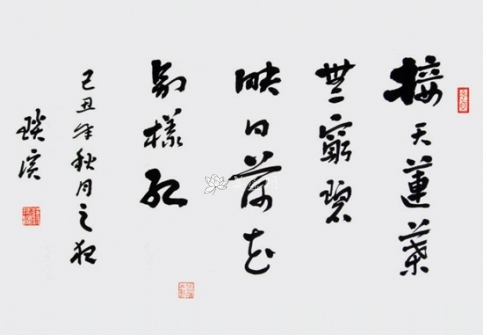 接天蓮葉
無窮碧
映日荷花
別樣紅
己丑年秋月之夜